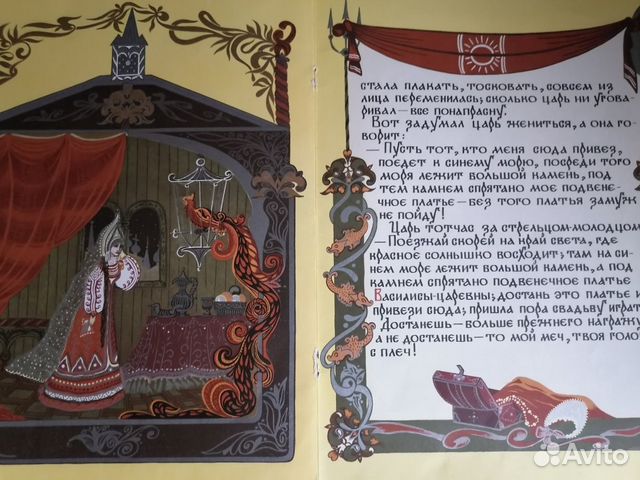 стала плакать, тосковать, совсем из
лица переменилась; сколько царь ни угова-
ривал — все понапрасну.
Вот задумал царь жениться, а она
говорит:
— Пусть тот, кто меня сюда привез,
поедет к синему морю, посреди того
моря лежит большой камень, под
тем камнем спрятано мое подвене-
чное платье — без того платья замуж
не пойду!
Царь тотчас за стрельцом-молодцом
— Поезжай скорей на край света, где
красное солнышко восходит; там на си-
нем море лежит большой камень, а под
камнем спрятано подвенечное платье
Василисы-царевны; достань это платье и
привези сюда; пришла пора свадьбу играт
Достанешь — больше прежнего награжу
а не достанешь — то мой меч, твоя голо
с плеч!
Avito